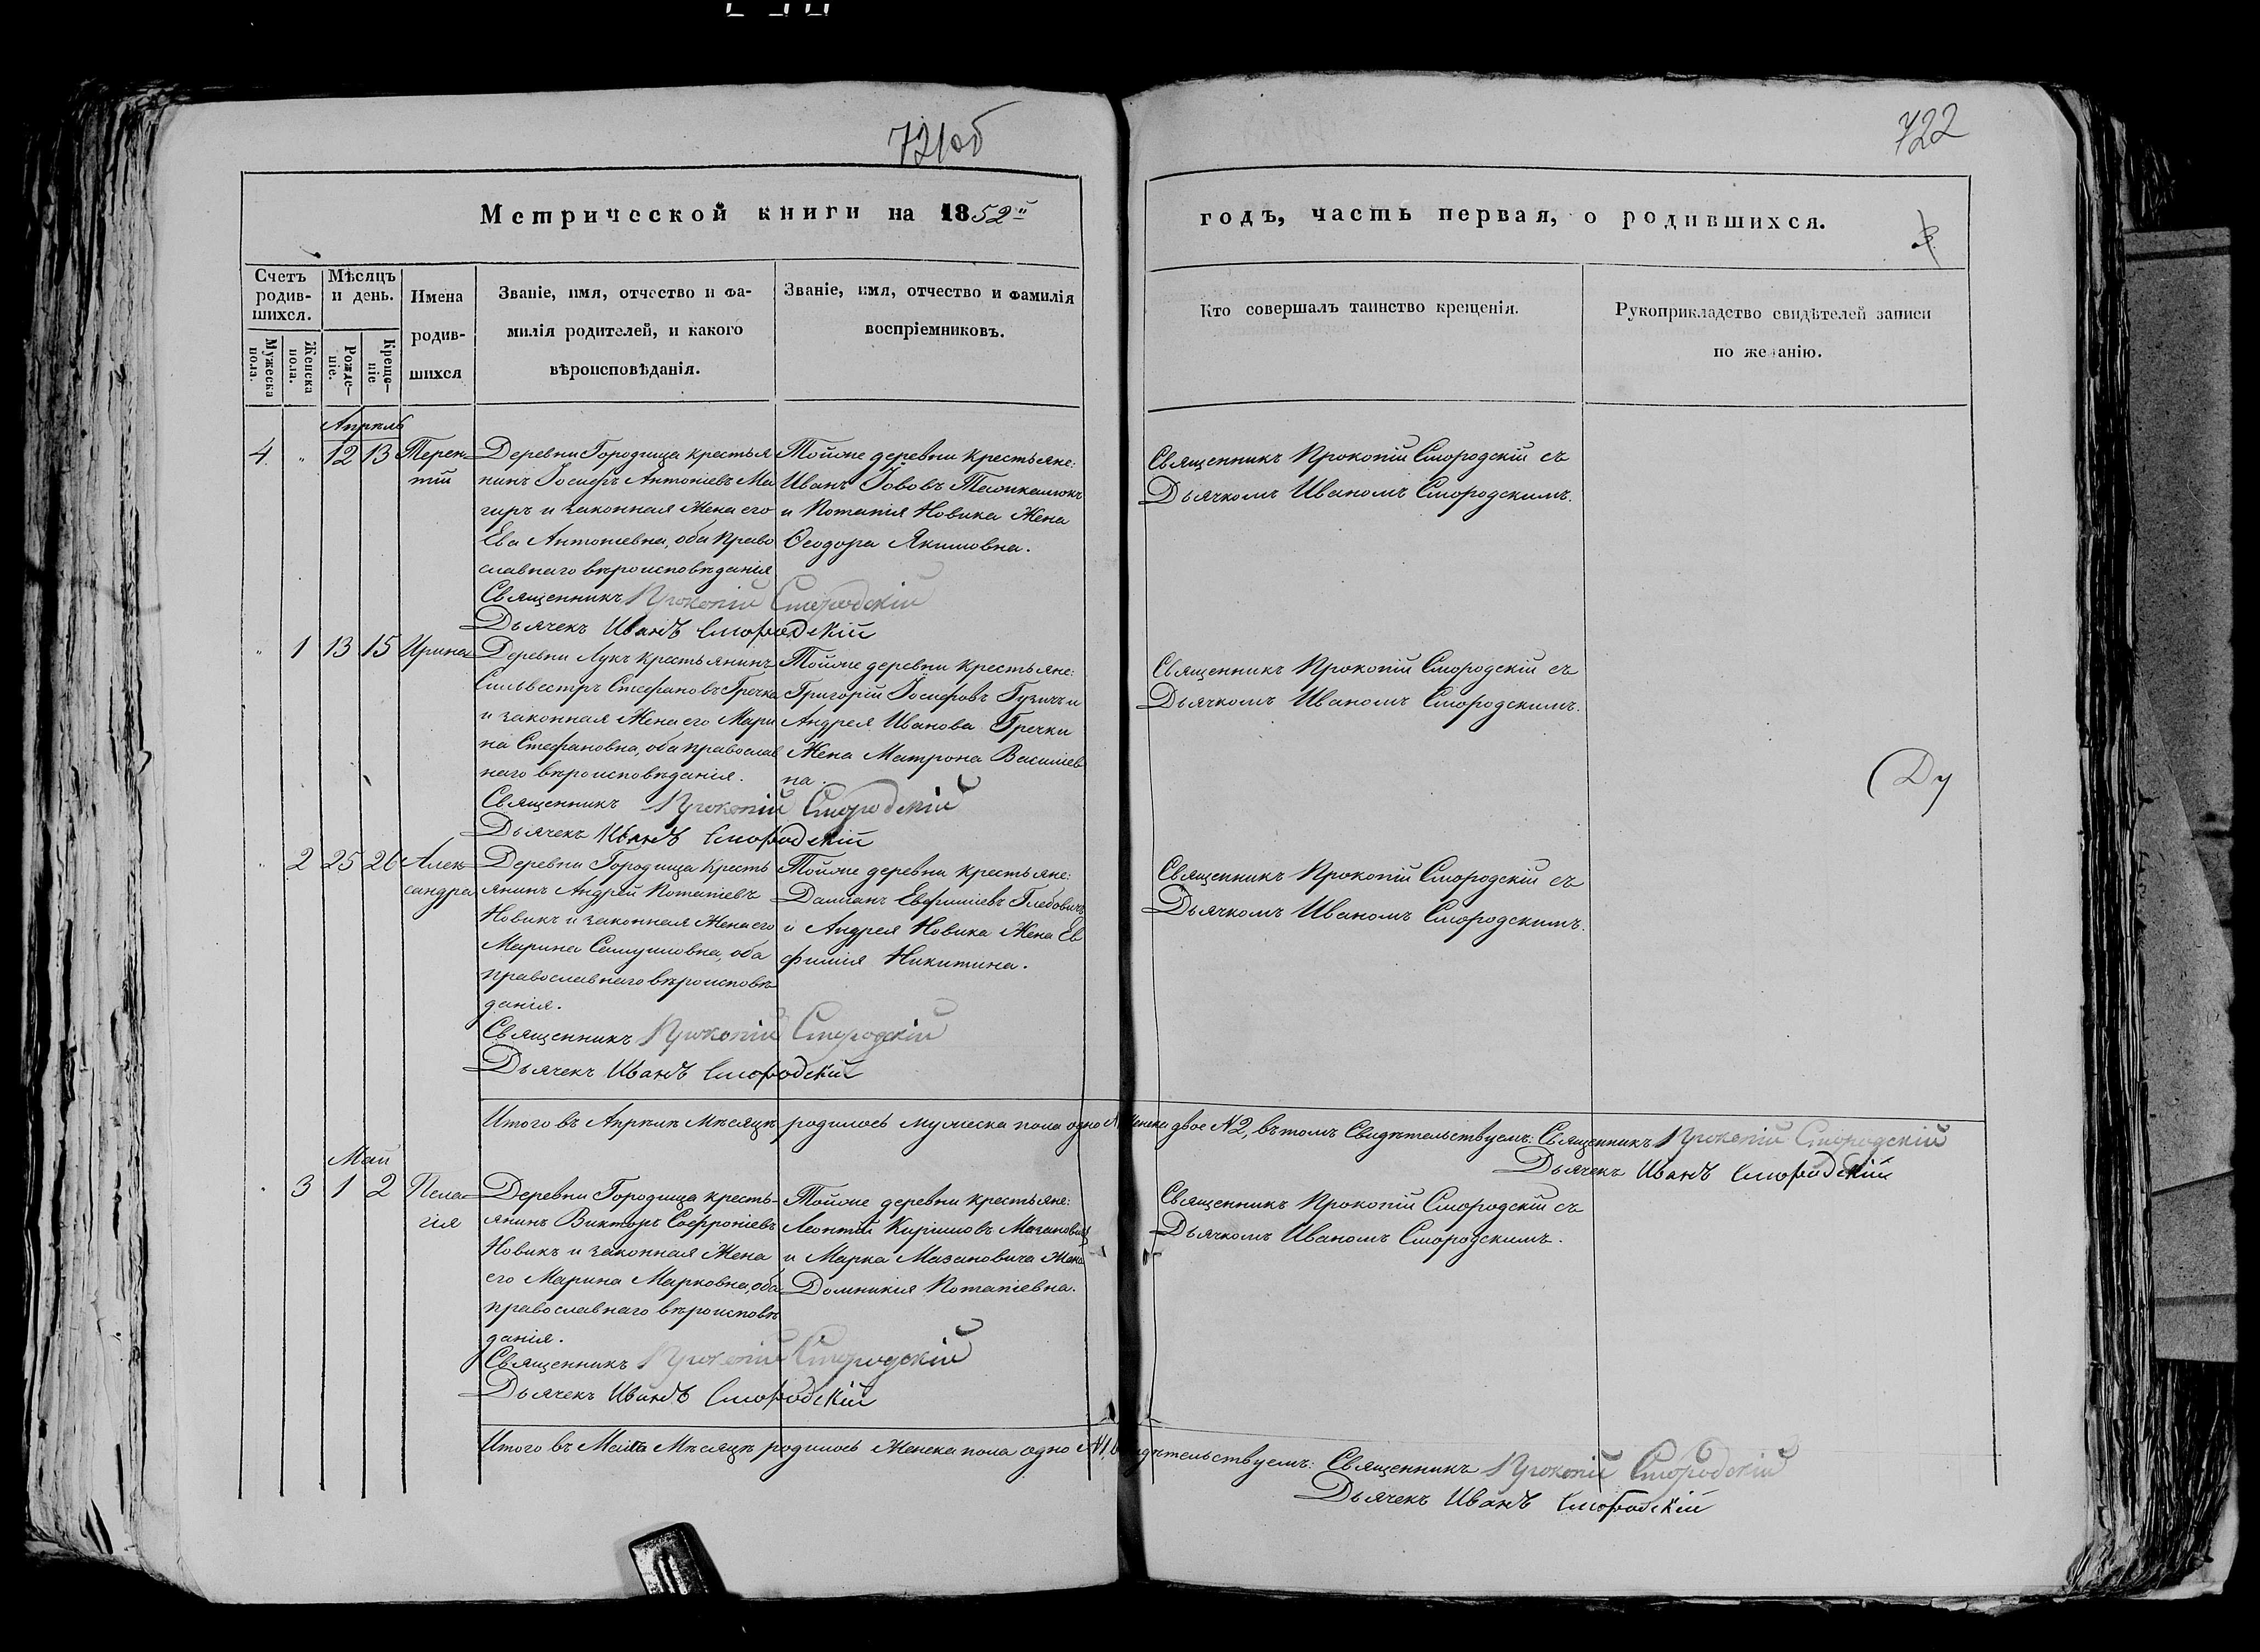 721об
722
Метрической книги на 1852й
годъ, часть первая, о родившихся.
Счетъ родив-
шихся.
Мѣсяцъ
и день.
Мужеска
пола.
Женска
пола.
Рожде-
ніе.
Креще-
ніе
Имена
родив-
шихся
Званіе, имя, отчество и фа-
милія родителей, и какого
вѣроисповѣданія.
Званіе, имя, отчество и фамилія
воспріемниковъ.
Кто совершалъ таинство крещенія.
Рукоприкладство свидѣтелей записи
по желанію.
Апрѣль
4. " 12 13 Терен-
тій
Деревни Городища крестья
нинъ Іосифъ Антоніевъ Ма
гиръ и законная Жена его
Ева Антоніевна, оба Право
славнаго вѣроисповѣданія
Тойже деревни крестьяне:
Иванъ Іововъ
и Потапія Новика Жена
Ѳеодора Якимовна.
Священникъ Прокопій Смородскій съ
Дьячкомъ Иваномъ Смородскимъ.
Священникъ Прокопій Смородскій
Дьячекъ Иванъ Смородскій
" 1 13 15 Ирина
Деревни Лукъ крестьянинъ
Сильвестръ Стефановъ Гречка
и законная Жена его Мари
на Стефановна, оба православ
наго вѣроисповѣданія.
Тойже деревни крестьяне:
Григорій Іосифовъ Гузичъ и
Андрея Иванова Гречки
Жена Матрона Василіев
на.
Священникъ Прокопій Смородскій съ
Дьячкомъ Иваномъ Смородскимъ.
Священникъ Прокопій Смородскій
Дьячекъ Иванъ Смородскій
" 2 25 26 Алек-
сандра
Деревни Городища кресть
янинъ Андрей Потапіевъ
Новикъ и законная Жена его
Марина Самуиловна, оба
православнаго вѣроисповѣ
данія.
Тойже деревни крестьяне:
Даміанъ Евфиміевъ Глебовичъ
и Андрея Новика Жена Ев
фимія Никитина.
Священникъ Прокопій Смородскій съ
Дьячкомъ Иваномъ Смородскимъ.
Священникъ Прокопій Смородскій
Дьячекъ Иванъ Смородскій
Итого въ Апрѣлѣ Мѣсяцѣ родилось мужеска пола одно женска двое №2, въ томъ Свидѣтельствуемъ: Священникъ Прокопій Смородскій
Дьячекъ Иванъ Смородскій
Май
" 3 1 2 Пела-
гія
Деревни Городища кресть-
янинъ Викторъ Софроніевъ
Новикъ и законная Жена
его Марина Марковна, оба
православнаго вѣроисповѣ
данія.
Тойже деревни крестьяне:
Леонтій Кириловъ Мазановичъ
и Марка Мазановича Жена
Домникія Потапіевна.
Священникъ Прокопій Смородскій съ
Дьячкомъ Иваномъ Смородскимъ.
Священникъ Прокопій Смородскій
Дьячекъ Иванъ Смородскій
Итого въ Маіѣ Мѣсяцѣ родилось Женска пола одно №1, Свидѣтельствуемъ: Священникъ Прокопій Смородскій
Дьячекъ Иванъ Смородскій